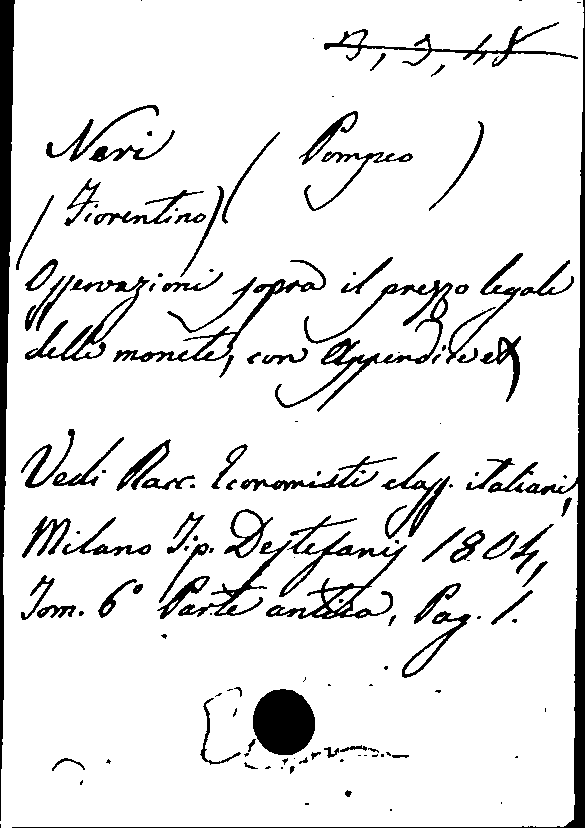 3, 3, 48
Neri ( Pompeo )
( Fiorentino )
Osservazioni sopra il prezzo legale
delle monete, con Appendice
Vedi Racc. Economisti class. italiani,
Milano Tip. Destefanis 1804,
Tom. 6° Parte antica, Pag. 1.